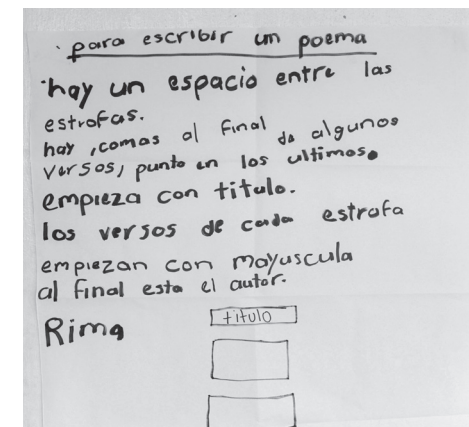 · para escribir un poema
·hay un espacio entre las
estrofas.
hay ,comas al final de algunos
versos, punto en los ultimos.
empieza con titulo.
los versos de cada estrofa
empiezan con mayuscula
al final esta el autor.
Rima
titulo